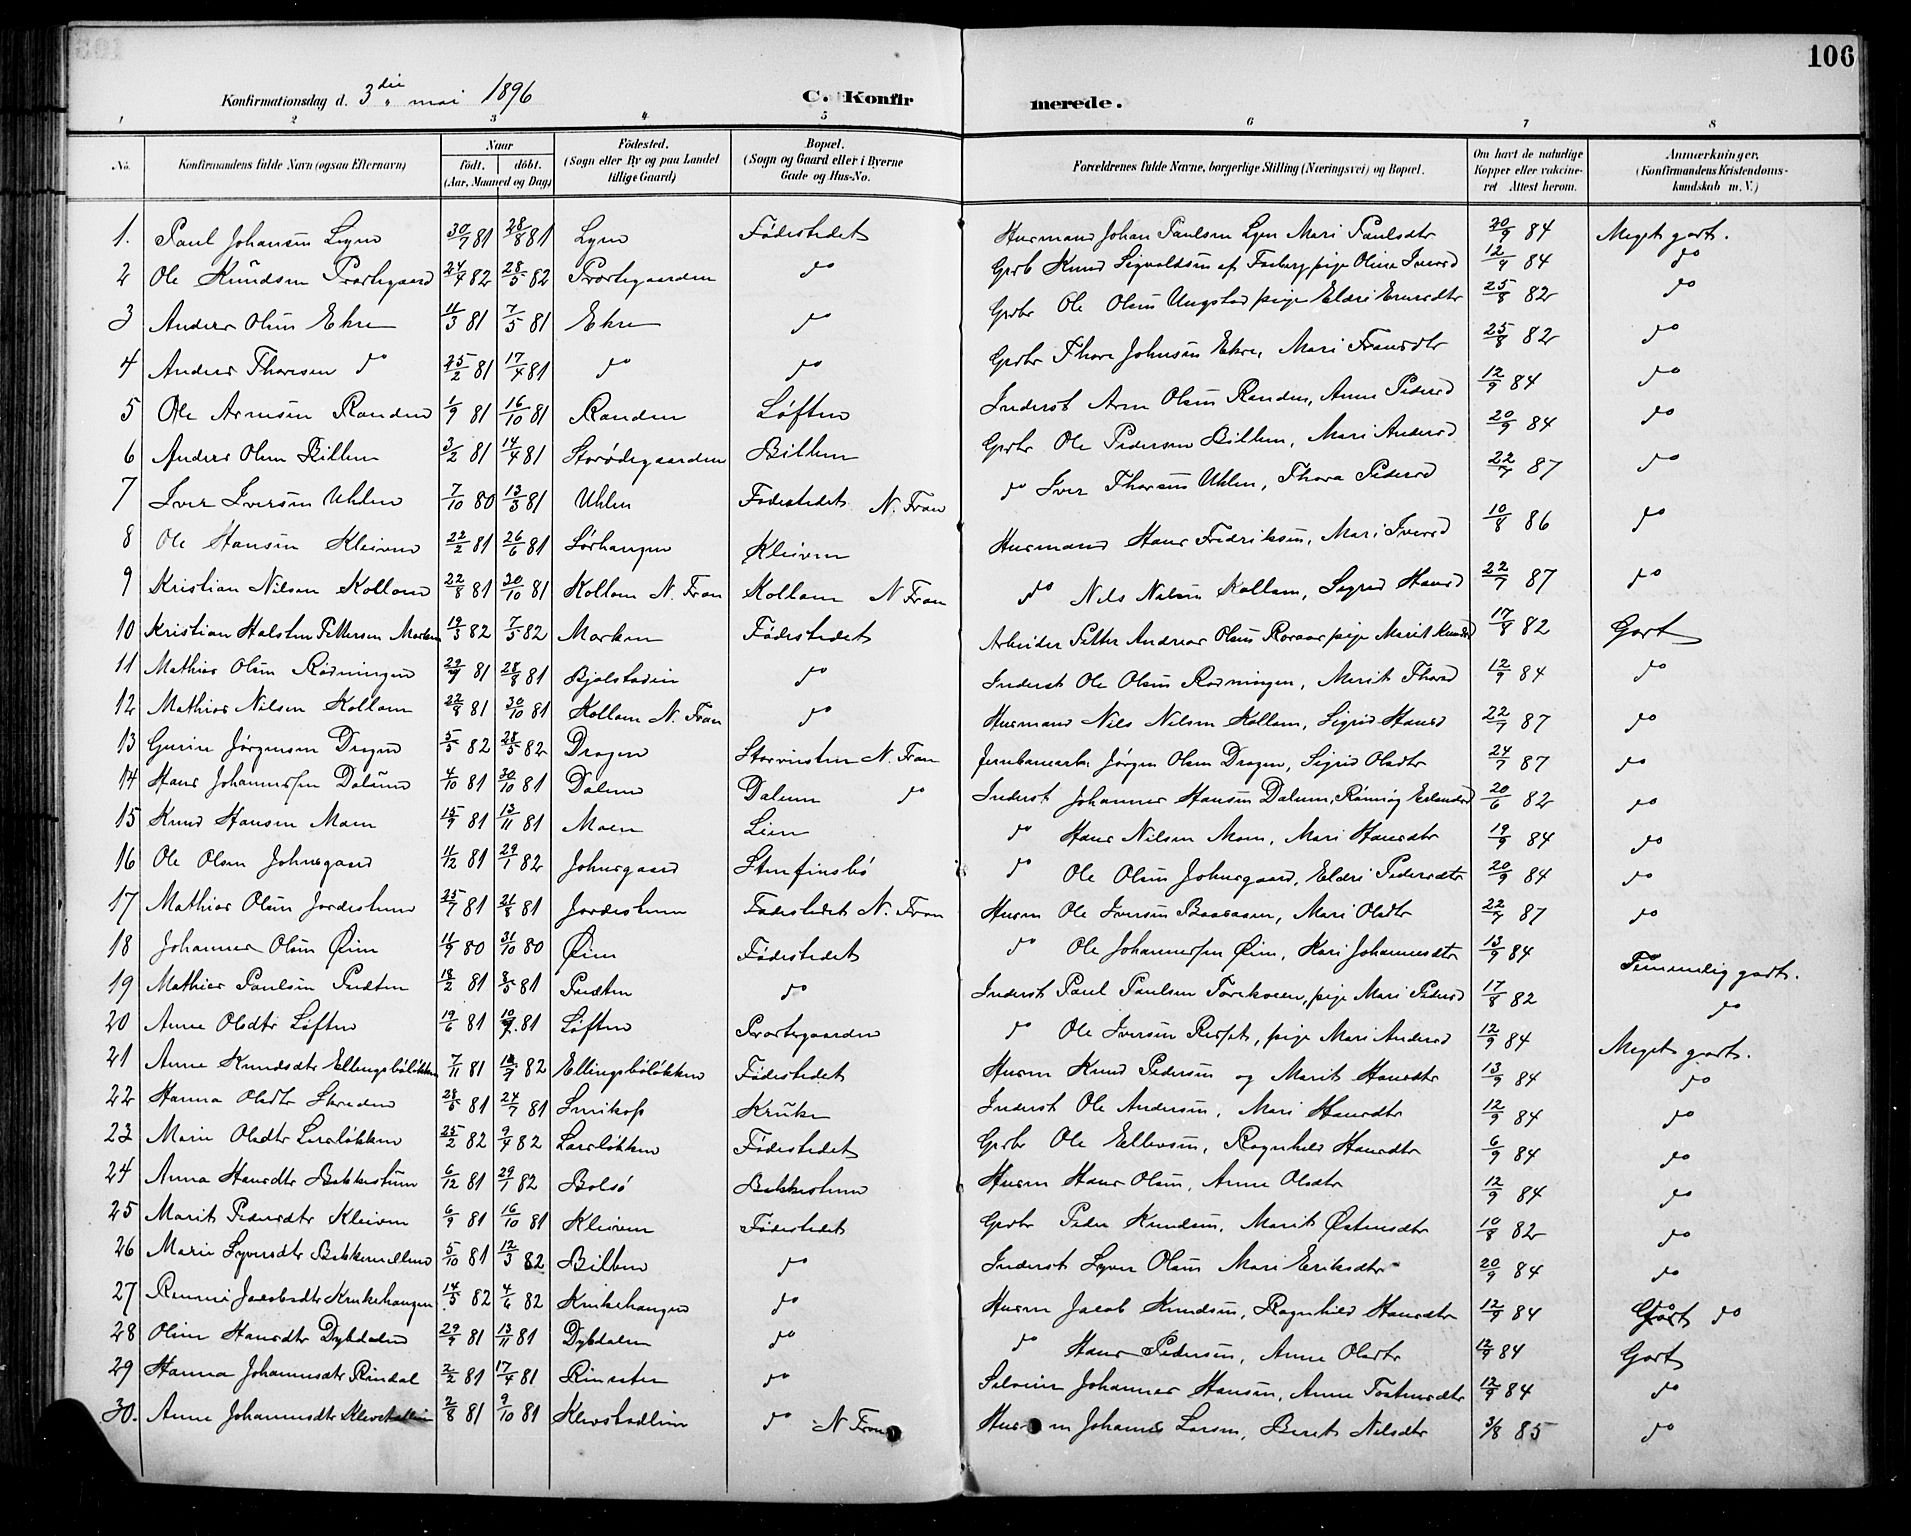 106
Konfirmationsdag d. 3die mai 1896 C. Konfirmerede.
1 2 3 4 5 6 7 8
No. Konfirmandens fulde Navn (ogsaa Efternavn) Naar födt. döbt. (Aar, Maaned og Dag) Födested. (Sogn eller By og paa Landet tillige Gaard) Bopæl. (Sogn og Gaard eller i Byerne Gade og Hus-No. Forældrenes fulde Navne, borgerlige Stilling (Næringsvei) og Bopæl. Om havt de naturlige Kopper eller vaccineret Attest herom. Anmærkninger. (Konfirmandens Kristendomskundskab m. V.)
1. Paul Johansen Lyen 30/7 81 28/8 81 Lyen Fødestedet Husmand Johan Paulsen Lyen Mari Paulsdtr 20/9 84 Meget godt.
2 Ole Knudsen Prestegaard 24/4 82 28/5 82 Prestegaarden do Gbr Knud Sigvaldsen af Faaberg, pige Olina Iversd 12/9 84 do
3 Anders Olsen Ekre 11/3 81 7/5 81 Ekre do Gbr Ole Olsen Ungstad pige Eldri Einersdtr 25/8 82 do
4 Anders Thoresen do 25/2 81 17/4 81 do do Gbr Thore Johnsen Ekre, Mari Fransdtr 25/8 82 do
5 Ole Arnesen Randen 1/9 81 16/10 81 Randen Løften Inderst Arne Olsen Randen, Anne Pedersd 12/9 84 do
6 Anders Olsen Billen 3/2 81 14/4 81 Storødegaarden Billen Gbr Ole Pedersen Billen, Mari Andersd 20/9 84 do
7 Iver Iversen Uhlen 7/10 80 13/3 81 Uhlen Fødestedet N. Fron do Iver Thoresen Uhlen, Thora Pedersd 22/7 87 do
8 Ole Hansen Kleiven 22/2 81 26/6 81 Lørhaugen Kleiven Husmand Hans Fredriksen, Mari Iversd 10/8 86 do
9 Kristian Nilsen Kollom 22/8 81 30/10 81 Kollom N. Fron Kollom N Fron do Nils Nilsen Kollom, Sigrid Hansd 22/7 87 do
10 Kristian Halsten Pettersen Morken 19/3 82 7/5 82 Morken Fødestedet Arbeider Petter Andreas Olsen Roraas pige Marit Knudsd 17/8 82 Godt
11 Mathias Olsen Rødningen 29/7 81 28/8 81 Bjølstadeie do Inderst Ole Olsen Rødningen, Marit Thorsd 12/9 84 do
12 Mathias Nilsen Kollom 22/8 81 30/10 81 Kollom N. Fron do Husmand Nils Nilsen Kollom, Sigrid Hansd 22/7 87 do
13 Gurine Jørgensen Dragen 5/5 82 28/5 82 Dragen N. Fron Jernbanearb. Jørgen Olsen Dragen, Sigrid Olsdtr 24/7 87 do
14 Hans Johannessen Dalum 4/10 81 30/10 81 Dalum Dalum do Inderst Johannes Hansen Dalum, Rønnøg Erlandsd 20/6 82 do
15 Knud Hansen Moen 15/9 81 13/11 81 Moen Lien do Hans Nilsen Moen, Mari Hansdtr 19/9 84 do
16 Ole Olsen Johnsgaard 11/12 81 29/1 82 Johnsgaard Stenfinsbø do Ole Olsen Johnsgaard, Eldri Pedersdtr 20/9 84 do
17 Mathias Olsen Jordeshun 25/7 81 21/8 81 Jordeshun Fødestedet N. Fron Husm Ole Iversen Baasaaen, Mari Olsdtr 22/7 87 do
18 Johannes Olsen Øien 11/9 80 31/10 80 Øien Fødestedet do Ole Johannessen Øien, Kari Johannesdtr 13/9 84 Temmelig godt.
19 Mathias Paulsen Pladten 18/2 81 8/5 81 Pladten do Inderst Paul Paulsen, pige Mari Pedersd 17/8 82 do
20 Anne Olsdtr Løften 19/6 81 10/7 81 Løften Prestegaarden do Ole Iversen, pige Mari Andersd 12/9 84 Meget godt.
21 Anne Knudsdtr Ellingsbøløkken 7/11 81 82 Ellingsbøløkken Fødestedet Husm Knud Pedersen og Marit Hansdtr 13/9 84 do
22 Hanna Olsdtr Skreden 28/6 81 24/7 81 Smikop Kruke Inderst Ole Andersen, Mari Hansdtr 12/9 84 do
23 Marie Olsdtr Larsløkken 25/2 82 9/4 82 Larsløkken Fødestedet Gbr Ole Ellevsen, Ragnhild Hansdtr 6/9 84 do
24 Anna Hansdtr Bakkestuen 6/12 81 29/1 82 Bolsø Bakkestuen Husm Hans Olsen, Anne Olsdtr 12/9 84 do
25 Marit Pedersdtr Kleiven 6/9 81 16/10 81 Kleiven Fødestedet Gbr Peder Knudsen, Marit Østensdtr 10/8 82 do
26 Marie Syversdtr Bakkemellem 5/10 81 12/3 82 Billen do Inderst Syver Olsen Mari Eriksdtr 20/9 84 do
27 Rønnei Jacobsdtr Krukehaugen 14/5 82 4/6 82 Krukehaugen do Husm Jacob Knudsen, Ragnhild Hansdtr 12/9 84 do
28 Oline Hansdtr Dybdalen 29/9 81 13/11 81 Dybdalen do do Hans Pedersen, Anne Olsdtr 12/9 84 Godt
29 Hanna Johannesdtr Rindal 2/2 81 17/4 81 do Selveier Johannes Hansen, Anne Tostensdtr 12/9 84 do
30. Anne Johannesdtr Klevstadlien 2/8 81 9/10 81 Klevstadlien do N Fron Husm Johannes Larsen, Berit Nilsdtr 3/8 85 do